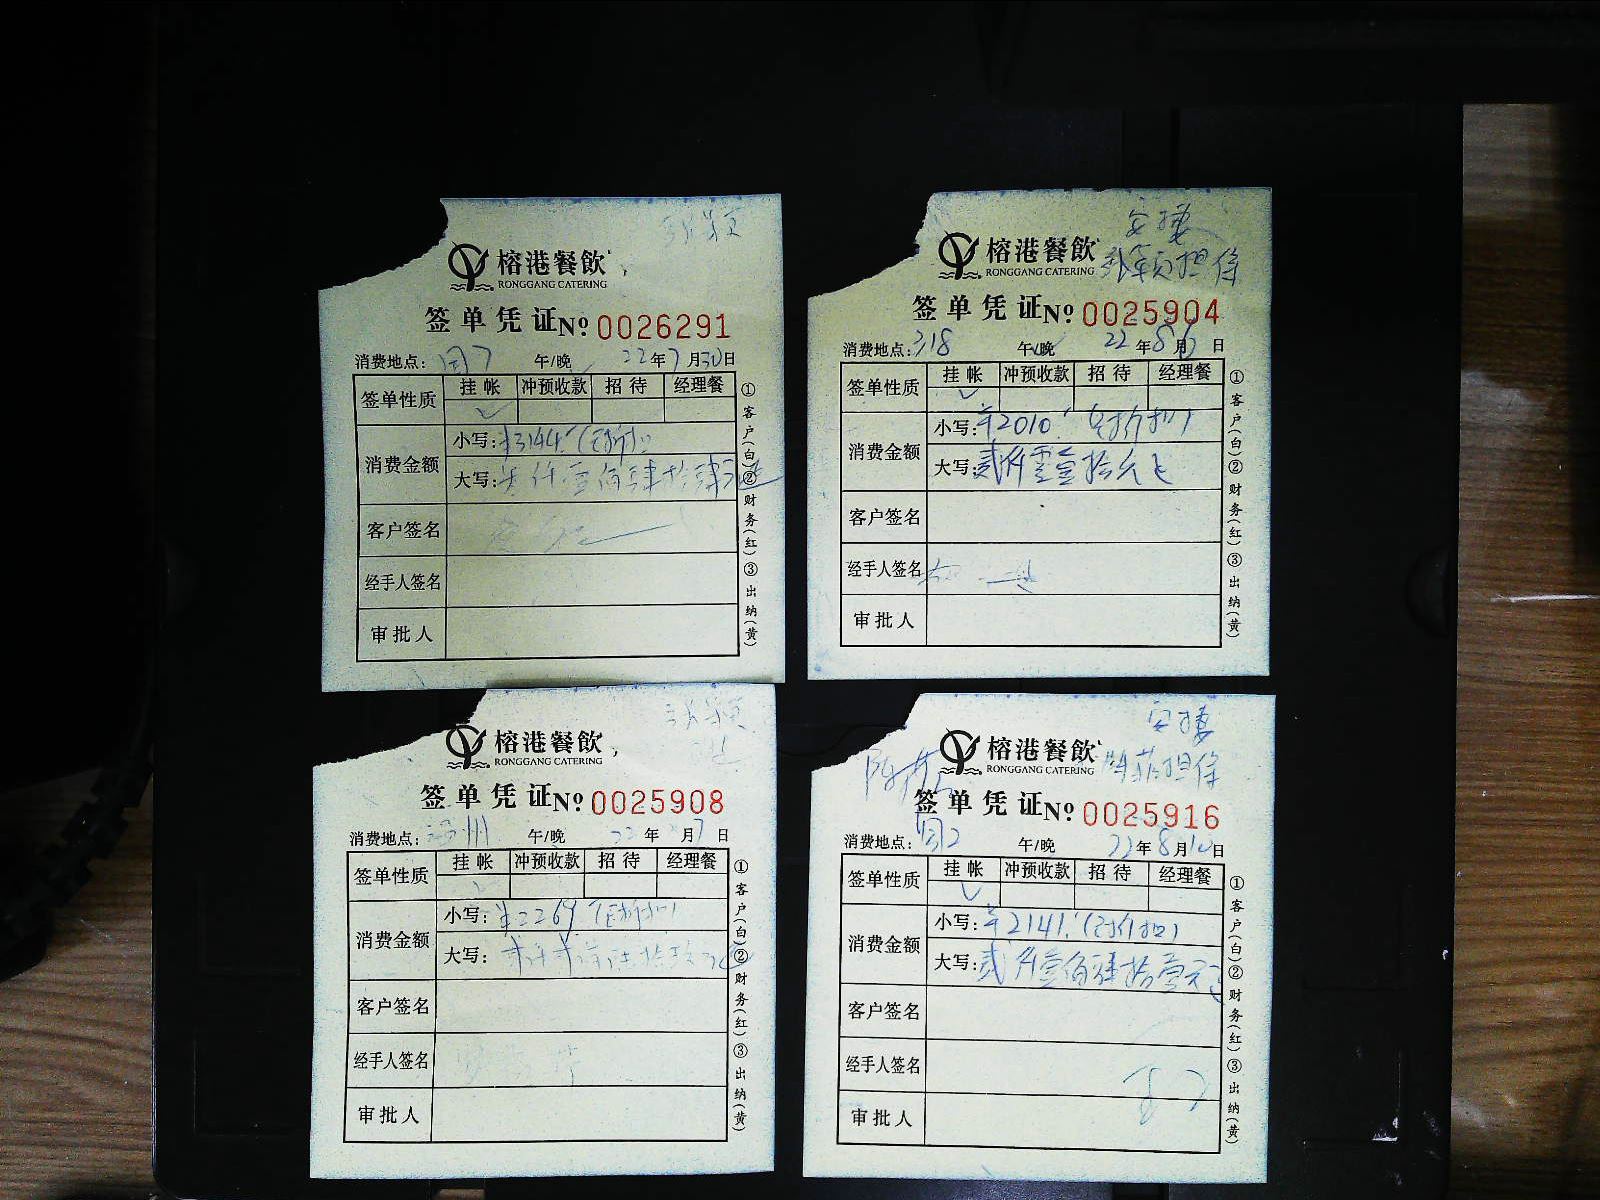 榕港餐飲
RONGGANG CATERING
签单凭证 Nº 0026291
消费地点： 午/晚 22年7月30日
签单性质 挂帐 冲预收款 招待 经理餐
消费金额 小写：¥3144.
大写：叁仟壹佰肆拾肆元
客户签名
经手人签名
审批人
①客户(白)②财务(红)③出纳(黄)
担保
榕港餐飲
RONGGANG CATERING
签单凭证 Nº 0025904
消费地点：318 午/晚 22年8月 日
签单性质 挂帐 冲预收款 招待 经理餐
消费金额 小写：¥2010.
大写：贰仟零壹拾元
客户签名
经手人签名
审批人
①客户(白)②财务(红)③出纳(黄)
榕港餐飲
RONGGANG CATERING
签单凭证 Nº 0025908
消费地点： 州 午/晚 22年 月7日
签单性质 挂帐 冲预收款 招待 经理餐
消费金额 小写：¥2269.
大写：贰仟贰佰陆拾玖元
客户签名
经手人签名
审批人
①客户(白)②财务(红)③出纳(黄)
担保
榕港餐飲
RONGGANG CATERING
签单凭证 Nº 0025916
消费地点： 午/晚 22年8月10日
签单性质 挂帐 冲预收款 招待 经理餐
消费金额 小写：¥2141.
大写：贰仟壹佰肆拾壹元
客户签名
经手人签名
审批人
①客户(白)②财务(红)③出纳(黄)